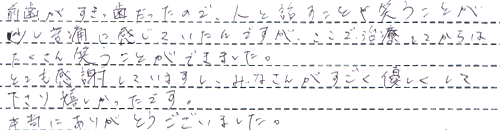 前歯がすきっ歯だったので、人と話すことや笑うことが
少し苦痛に感じていたんですが、ここで治療してからは
たくさん笑うことができました。
とても感謝していますし、みなさんがすごく優しくして
下さり嬉しかったです。
本当にありがとうございました。